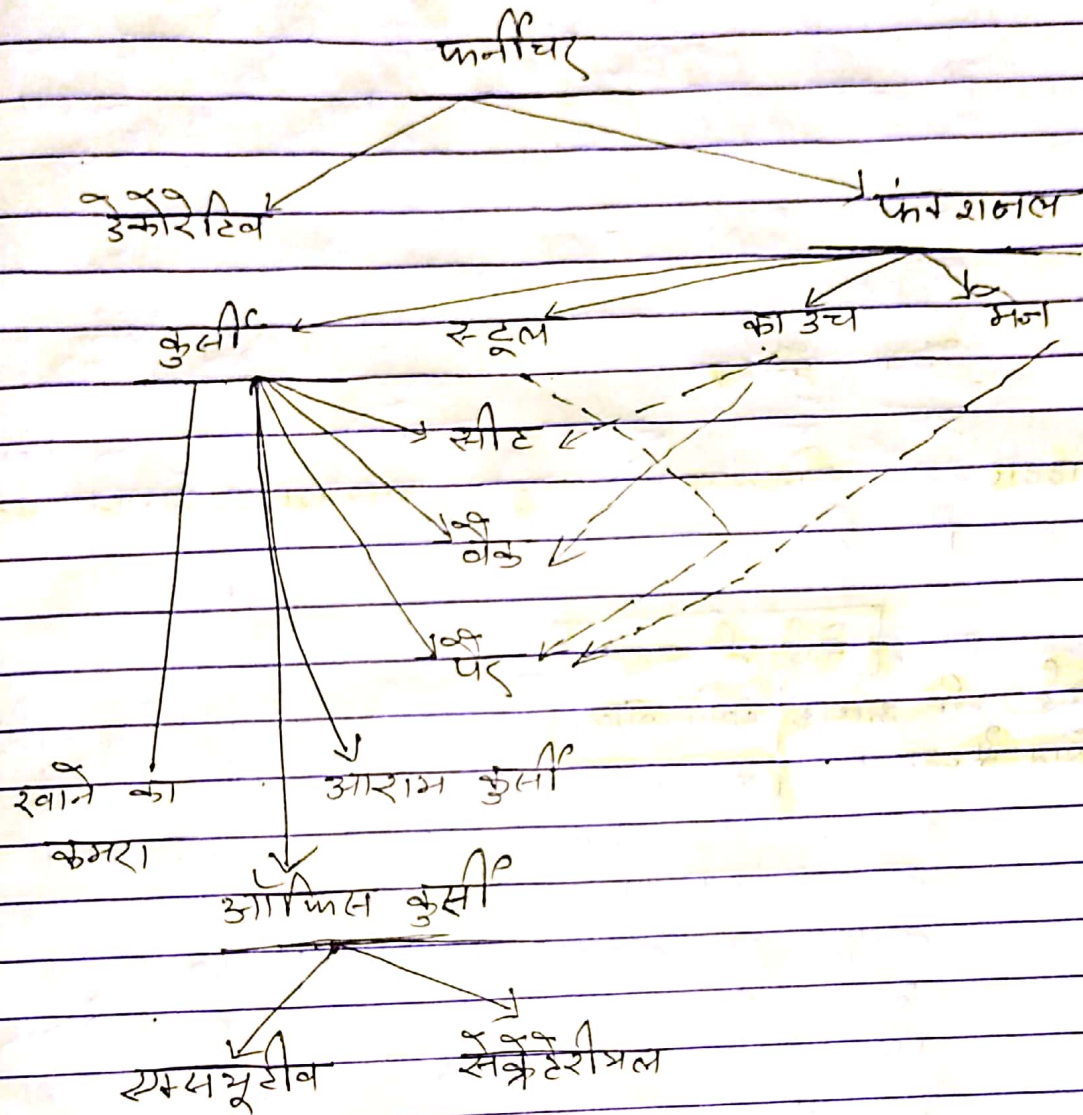 फर्नीचर
डेकोरेटिव फंक्शनल
कुर्सी स्टूल काउच मेज
सीट
बैक
पैर
खाने का आराम कुर्सी
कमरा
ऑफिस कुर्सी
एक्सक्यूटीव सेक्रेटेरीयल